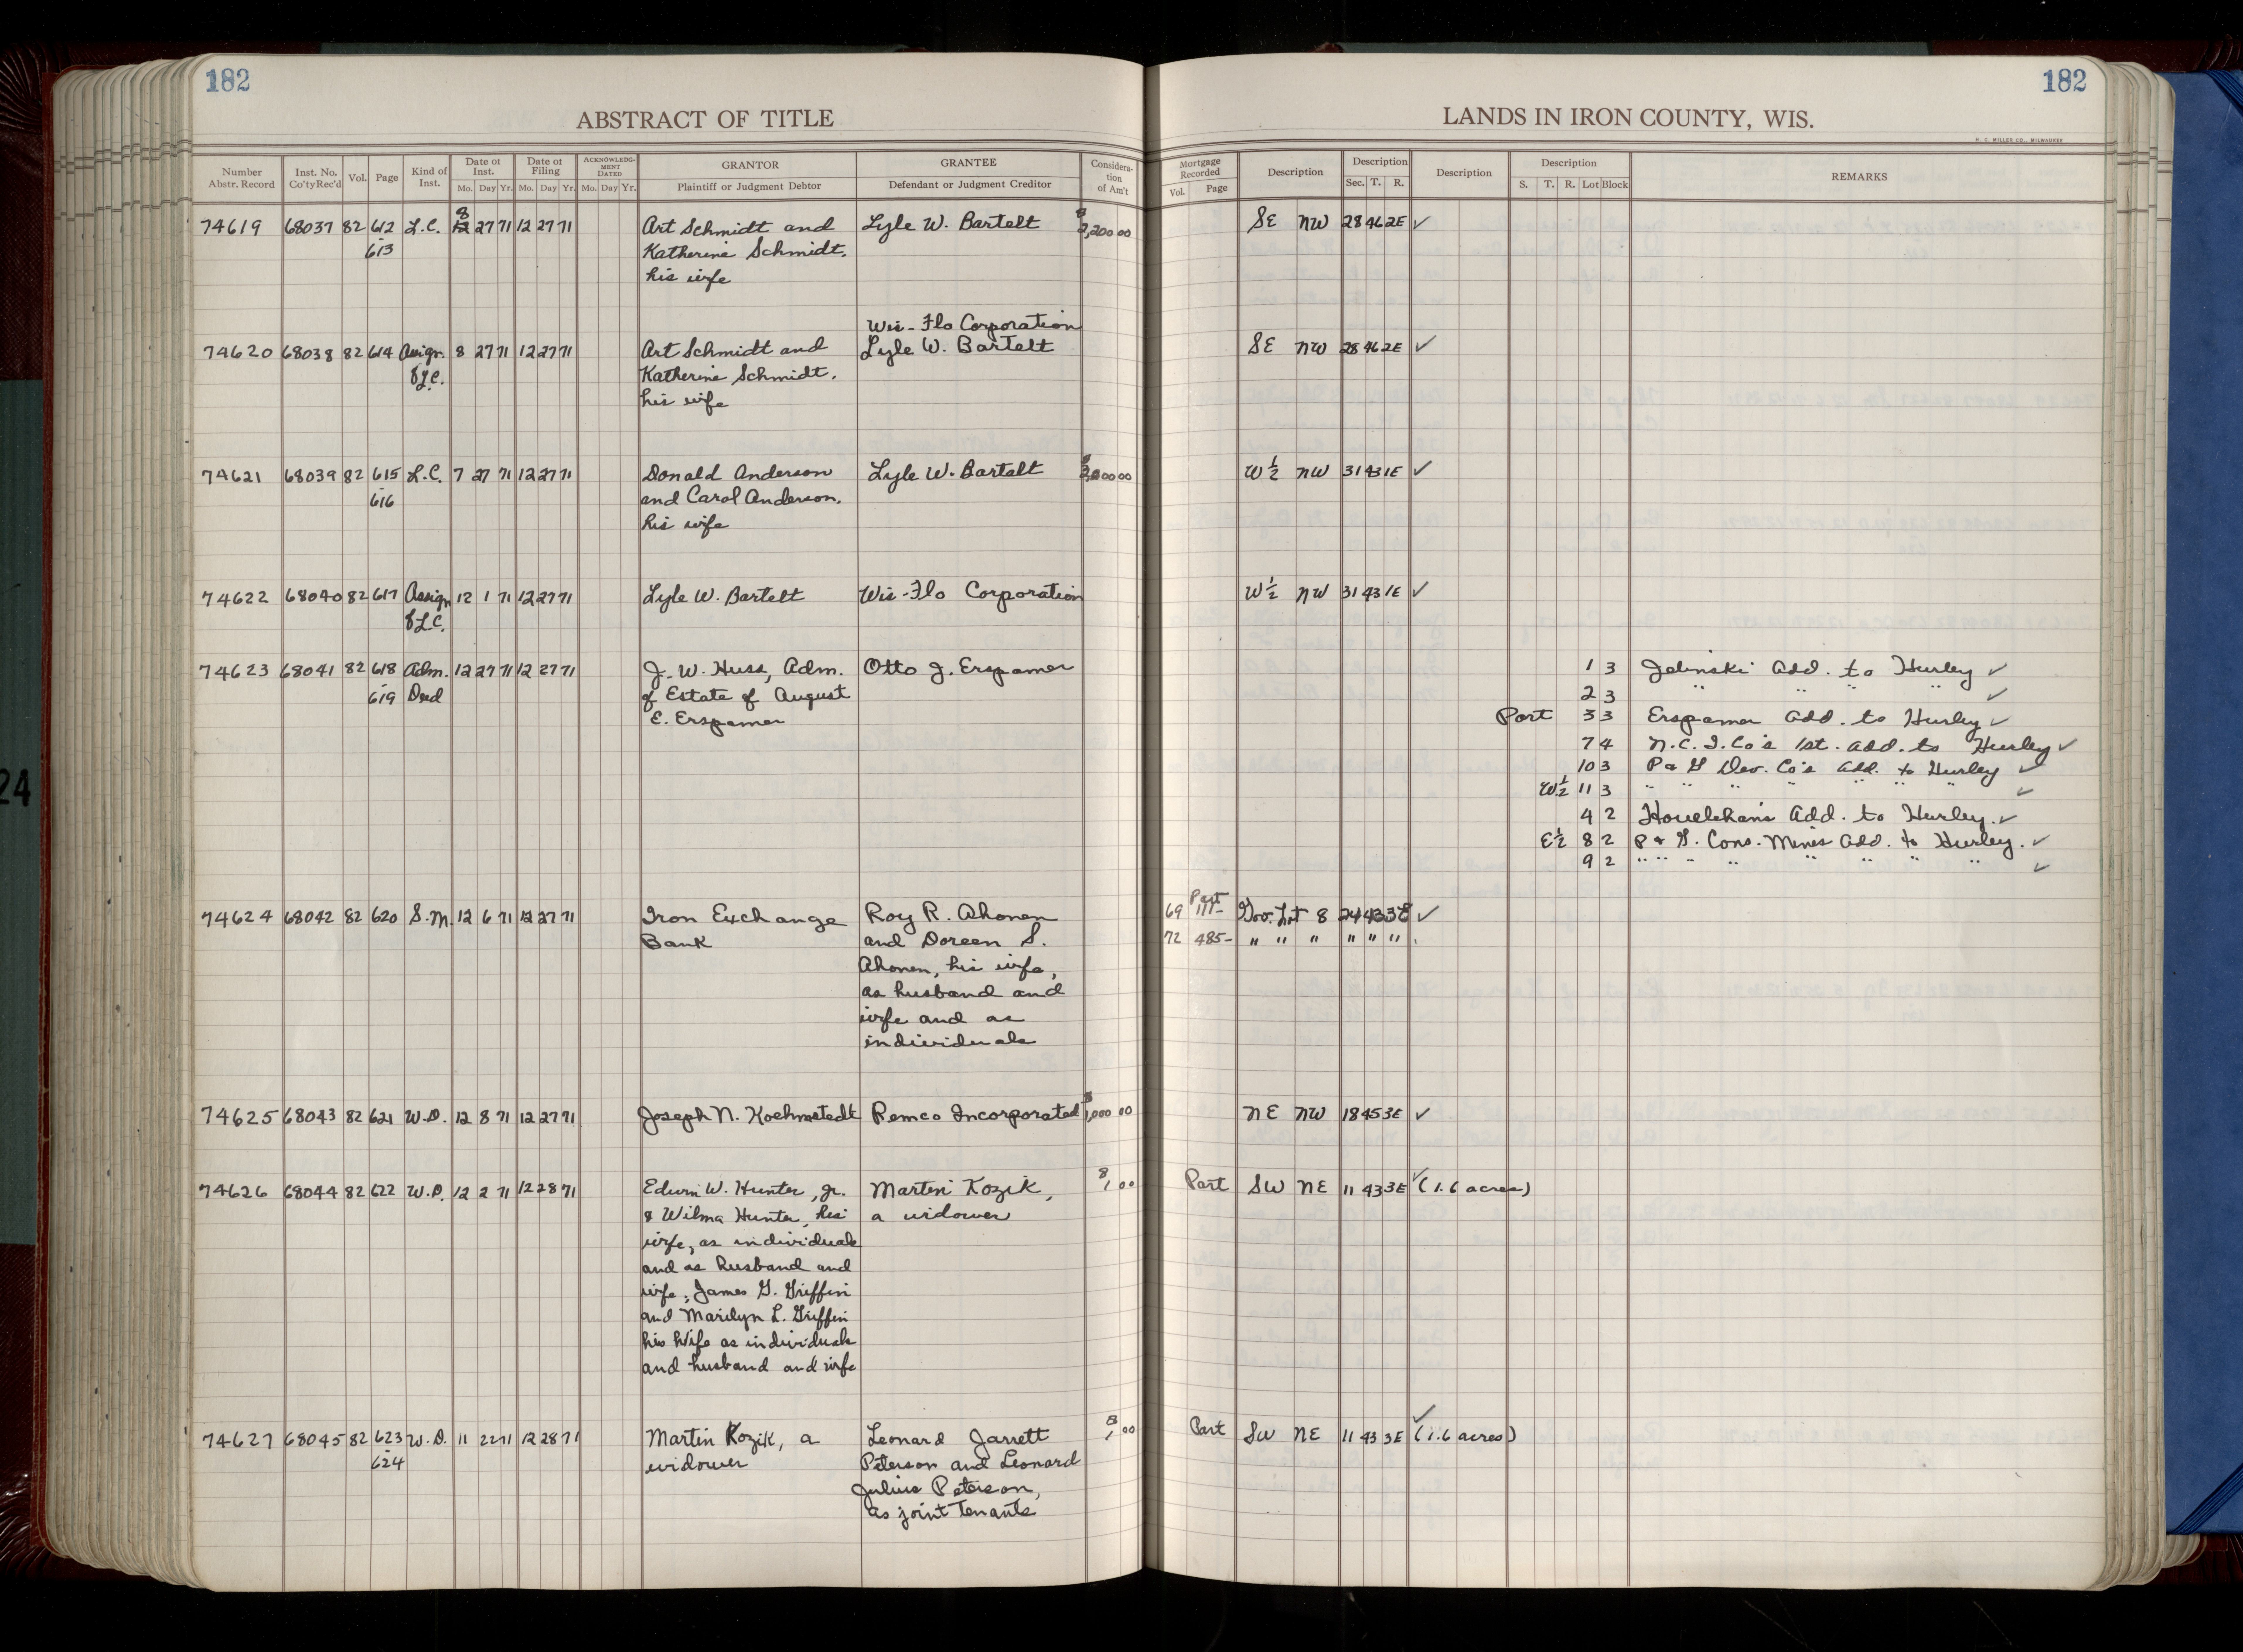 182
182
ABSTRACT OF TITLE
LANDS IN IRON COUNTY, WIS.
H. C. MILLER CO., MILWAUKEE
Number Abstr. Record
Inst. No. Co'ty Rec'd
Vol.
Page
Kind of Inst.
Date of Inst.
Mo. Day Yr.
Date of Filing
Mo. Day Yr.
ACKNOWLEDGMENT DATED
Mo. Day Yr.
GRANTOR
Plaintiff or Judgment Debtor
GRANTEE
Defendant or Judgment Creditor
Consideration of Am't
Mortgage Recorded
Vol. Page
Description
Description
Sec. T. R.
Description
Description
S. T. R. Lot Block
REMARKS
74619 68037 82 612 L.C. 8 27 71 12 27 71 Art Schmidt and Lyle W. Bartelt 00 SE NW 28 46 2E ✓
613 Katherine Schmidt,
his wife
Wis-Flo Corporation
74620 68038 82 614 Assign. 8 27 71 12 27 71 Art Schmidt and Lyle W. Bartelt SE NW 28 46 2E ✓
of L.C. Katherine Schmidt,
his wife
74621 68039 82 615 L.C. 7 27 71 12 27 71 Donald Anderson Lyle W. Bartelt 00 W½ NW 31 43 1E ✓
616 and Carol Anderson,
his wife
74622 68040 82 617 Assign 12 1 71 12 27 71 Lyle W. Bartelt Wis-Flo Corporation W½ NW 31 43 1E ✓
of L.C.
74623 68041 82 618 Adm. 12 27 71 12 27 71 J. W. Huss, Adm. Otto J. Erspamer 1 3 Jelinski Add. to Hurley ✓
619 Deed of Estate of August 2 3 " " " " ✓
E. Erspamer Part 3 3 Erspamer Add. to Hurley ✓
7 4 N.C.I.Co's 1st. Add. to Hurley ✓
10 3 P & G Dev. Co's Add. to Hurley ✓
W½ 11 3 " " " " " " ✓
4 2 Add. to Hurley. ✓
E½ 8 2 P & G. Cons. Mines Add. to Hurley. ✓
9 2 " " " " " " " " ✓
74624 68042 82 620 S.M. 12 6 71 12 27 71 Iron Exchange Roy R. Ahonen 69 Part 111- Gov. Lot 8 24 43 3E ✓
Bank and Doreen S. 72 485- " " " " " "
Ahonen, his wife,
as husband and
wife and as
individuals
74625 68043 82 621 W.D. 12 8 71 12 27 71 Joseph N. Koehmstedt Remco Incorporated $1,000 00 NE NW 18 45 3E ✓
74626 68044 82 622 W.D. 12 2 71 12 28 71 Edwin W. Hunter, Jr. Martin Kozik, $1 00 Part SW NE 11 43 3E ✓ (1.6 acres)
& Wilma Hunter, his a widower
wife, as individuals
and as husband and
wife; James G. Griffin
and Marilyn L. Griffin
his wife as individuals
and husband and wife
74627 68045 82 623 W.D. 11 22 71 12 28 71 Martin Kozik, a Leonard Jarrett $1 00 Part SW NE 11 43 3E ✓ (1.6 acres)
624 widower Peterson and Leonard
Julius Peterson,
as joint tenants
24